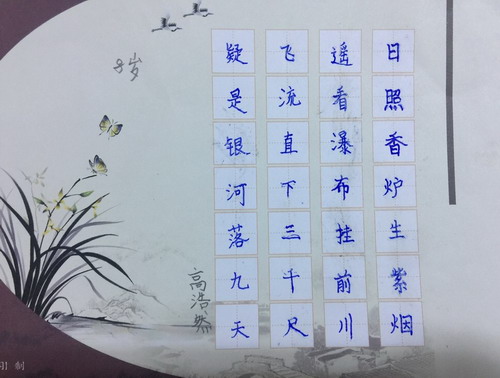 日照香炉生紫烟
遥看瀑布挂前川
飞流直下三千尺
疑是银河落九天
高浩然
8岁
制